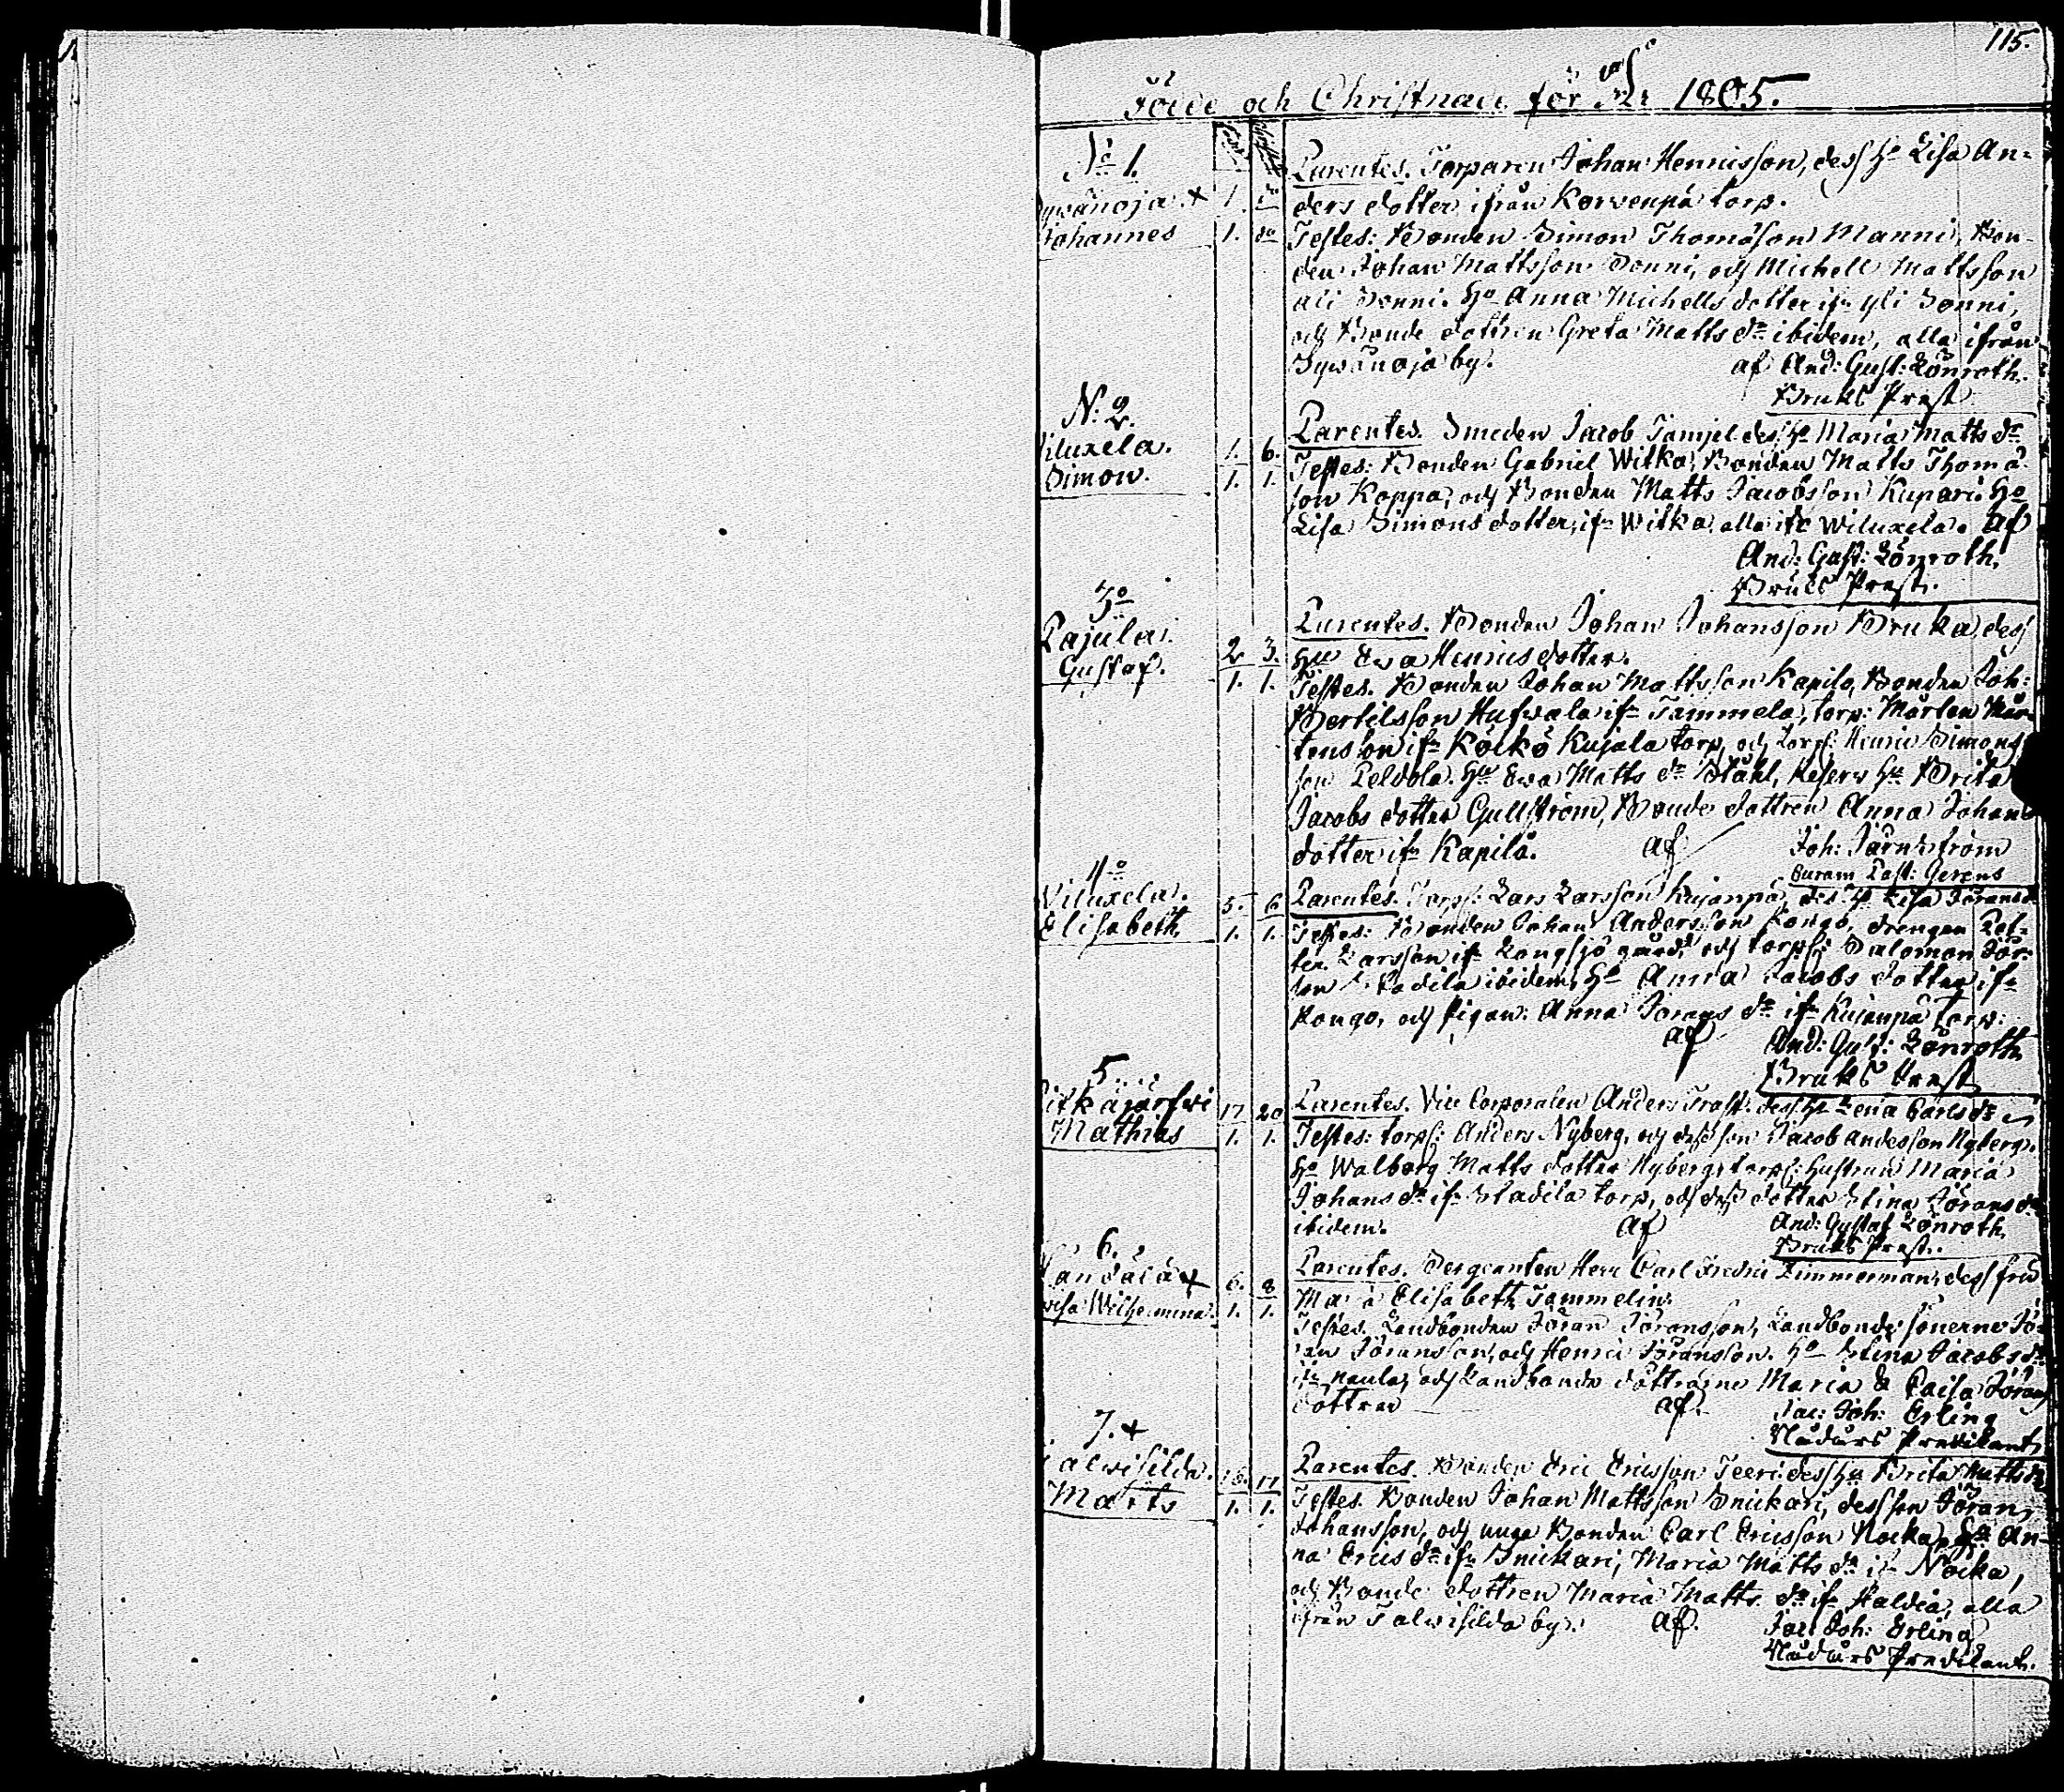 115.
Födde och Christnade för 1805.
No 1.
Johannes
1.
1. do
Parentes. Torparen Johan Henricsson, dess Ho Lisa An=
ders dotter ifrån Korvenpä torp.
Testes: Bonden Simon Thomasson Manni, Bon-
den Johan Mattsson Sonni, och Michell Mattsson
ali Sonni. Ho Anna Michells dotter ifn Yli Sonni,
och Bonde dottren Greta Matts dr ibidem, alla ifrån
Sywänoja by. af And: Gust: Lönroth.
Bruks Prest
N: 2.
Wiluxela.
Simon.
1. 6.
1. 1.
Parentes. Smeden Jacob Tamjel dess Ho Maria Matts dr
Testes: Bonden Gabriel Witka, Bonden Matts Thoma
son Koppa, och Bonden Matts Jacobsson Kupari. Ho
Lisa Simons dotter, ifn Witka, alla ifr Wiluxela. af
And: Gust: Lönroth,
Bruks Prest.
3o
Pajula.
Gustaf.
2 3.
1. 1.
Parentes. Bonden Johan Johansson Bruka, dess
Hu Ewa Henrics dotter.
Testes. Bonden Johan Mattsson Kapilo, Bonden Joh:
Bertilsson Hufwala ifn Tammela, torp: Mårten Mår-
tensson ifn Kölkö Kujala torp, och torp: Henric Simons
son Peldola. Hu Ewa Matts dr Ståhl, Reserv Hu Brita
Jacobs dotter Gullström, Bonde dottren Anna Johans
dotter ifn Kapilå. af Joh: Järnström
Curam Past: Gerens
4o
Wiluxela.
Elisabeth
5. 6
1. 1.
Parentes. Torp: Lars Larsson Kujanpä, dess Ho Lisa Jörans d
Testes: Bonden Johan Andersson Kongo, drengen Pet-
ter Larsson ifn Longsjö gård, och torp: Salomon Jör:
son Stadila ibidem, Ho Anna Jacobs dotter ifn
Kongo, och Pigan: Anna Jörans dr ifn Kujanpä torp:
af And: Gust: Lönroth
Bruks Prest
5.
Pitkäjärfwi
Mathias
17 20
1. 1.
Parentes. Vice Corporalen Anders Trast: dess Ho Lena Carls dr
Testes: torp: Anders Nyberg, och dess son Jacob Andersson Nyberg.
Ho Walborg Matts dotter Nyberg, torp: hustrun Maria
Johans dr ifn Stadila torp, och dess dotter Stina Jörans dr
ibidem. af And: Gustaf Lönroth,
Bruks Prest.
6.
Wilhelmina.
6. 8
1. 1.
Parentes. Sergeanten Herr Carl Fredric Zimmerman, dess fru
Maria Elisabeth Tammelin.
Testes. Landbonden Jöran Jöransson, Landbonde sönerne Jö-
ran Jöransson, och Henric Jöransson. Ho Stina Jacobs dr
ifn Paula, och Landbonde döttrarne Maria & Caisa Jörans
dottrar af. Jac: Joh: Erling
Nådårs Predikant,
7.
Talwisilda.
Matts
16. 17
1. 1.
Parentes. Bonden Eric Ericsson Teeri dess Hu Brita Matts dr
Testes. Bonden Johan Mattsson Snickari, dess son Jöran
Johansson, och unga Bonden Carl Ericsson Nocka, Hu An-
na Erics dr ifn Snickari, Maria Matts dr ifn Nocka,
och Bonde dottren Maria Matts dr ifn Haldia, alla
ifrån Talwisilda by. af. Jac: Joh: Erling
Nådårs Predikant.